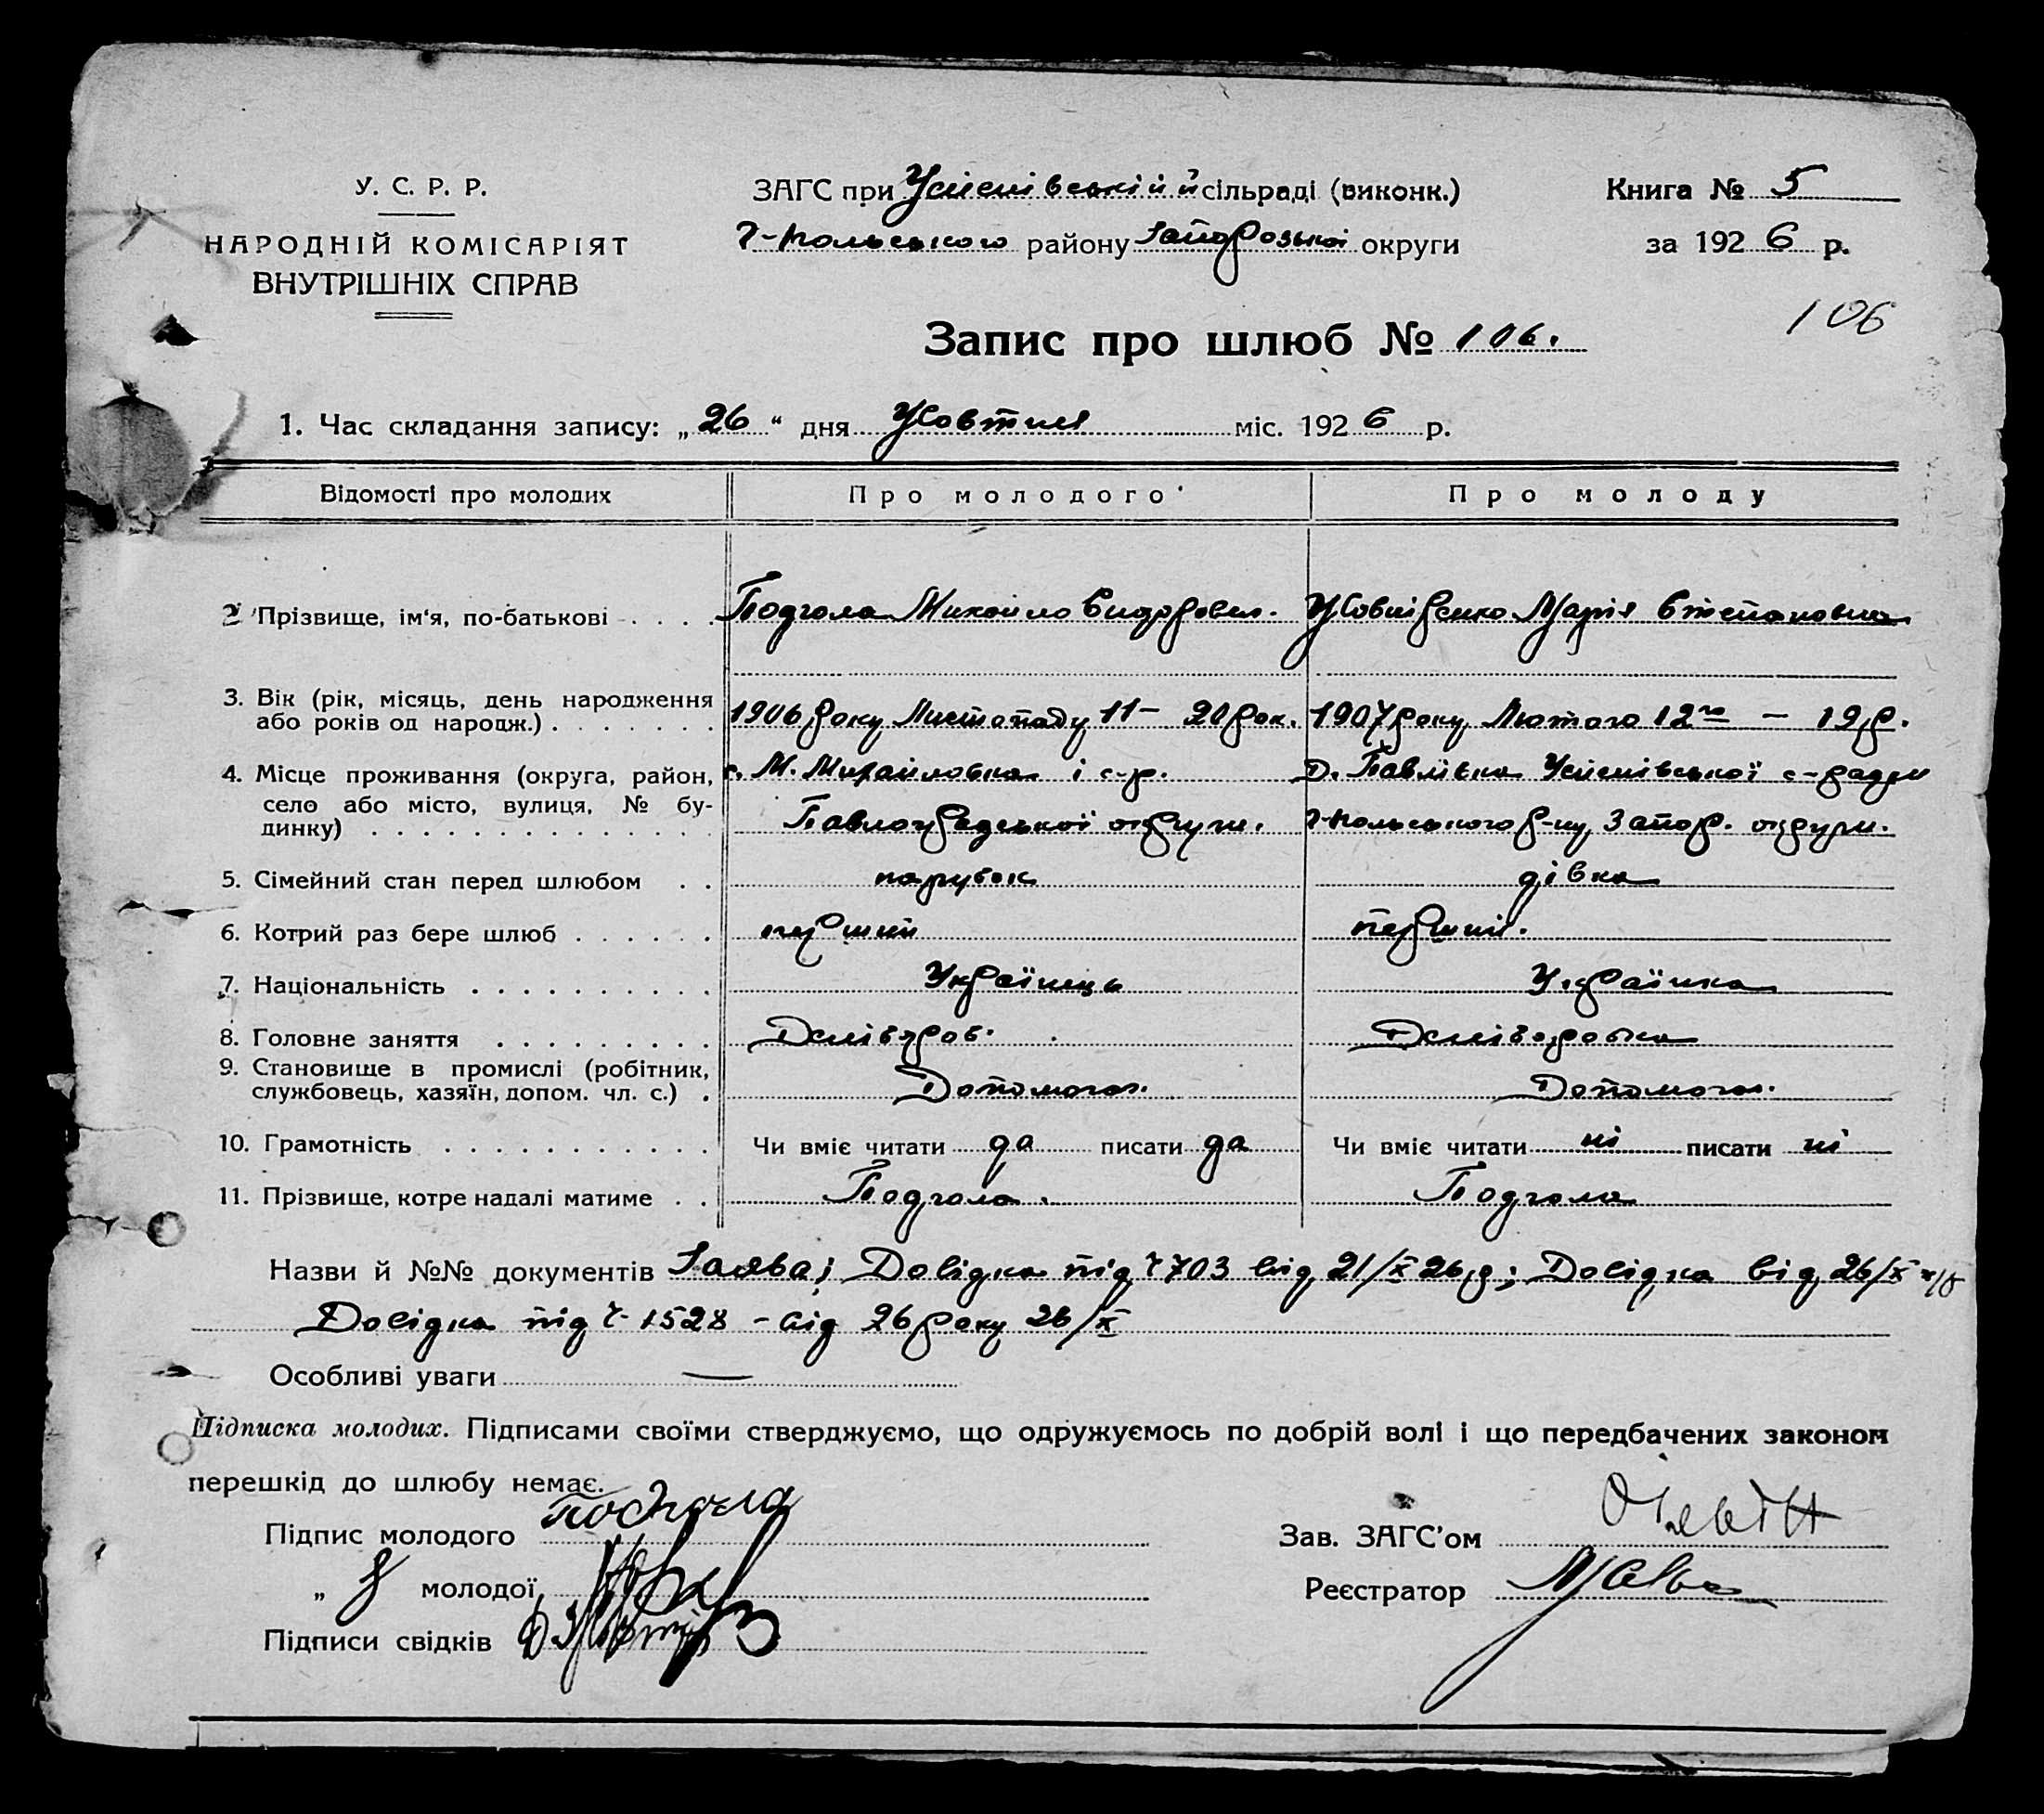 У. С. Р. Р.
НАРОДНІЙ КОМІСАРІЯТ
ВНУТРІШНІХ СПРАВ
ЗАГС при Успенівській й сільраді (виконк.)
Г-Польського району Запорозької округи
Книга № 5
за 1926 р.
106
Запис про шлюб № 106.
1. Час складання запису: „26“ дня Жовтня міс. 1926 р.
Відомості про молодих Про молодого Про молоду
2 Прізвище, ім'я, по-батькові . . . . Подгола Михайло Сидорович. Жовнiренко Марія Степановна
3. Вік (рік, місяць, день народження 1906 року Листопаду 11 – 20 рок. 1907 року Лютого 12го – 19 р.
або років од народж.) . . . . . . .
4. Місце проживання (округа, район, с. М. Михайловка і с-р. д. Павлівка Успенівської с-ради
село або місто, вулиця, № бу-
динку) . . . . . . . . . . . . . . Павлоградської округи. Г-Польського р-ну, Запор. округи.
5. Сімейний стан перед шлюбом . . парубок дівка
6. Котрий раз бере шлюб . . . . . . перший перший.
7. Національність . . . . . . . . . . Українець Українка
8. Головне заняття . . . . . . . . . Хлібороб. Хліборобка
9. Становище в промислі (робітник,
службовець, хазяїн, допом. чл. с.) . Допомога. Допомога.
10. Грамотність . . . . . . . . . . . Чи вміє читати да писати да Чи вміє читати ні писати ні
11. Прізвище, котре надалі матиме . . Подгола. Подгола
Назви й №№ документів Заява; Довідка під ч 703 від 21/X 26 р; Довідка від 26/X
Довідка під ч. 1528 – від 26 року 26/X
Особливі уваги —
Підписка молодих. Підписами своїми стверджуємо, що одружуємось по добрій волі і що передбачених законом
перешкід до шлюбу немає.
Підпис молодого Подгола
„ молодої
Підписи свідків
Зав. ЗАГС'ом
Реєстратор